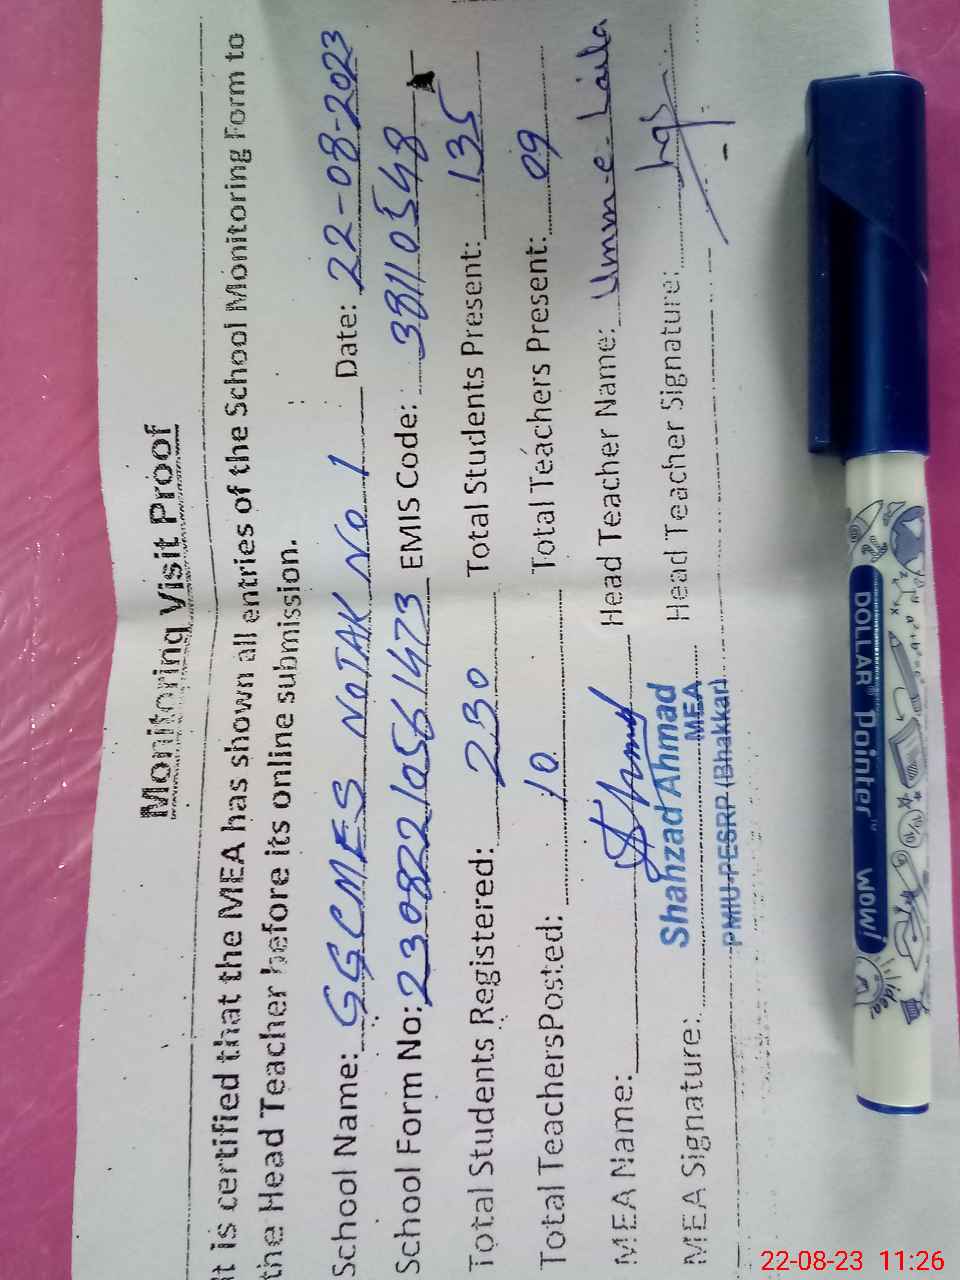 Monitoring Visit Proof
It is certified that the MEA has shown all entries of the School Monitoring Form to
the Head Teacher before its online submission.
School Name: GGCMES NOTAK No 1 Date: 22-08-2023
School Form No: 23082210561473 EMIS Code: 38110548
Total Students Registered: 230 Total Students Present: 135
Total TeachersPosted: 10 Total Teachers Present: 09
MEA Name: Head Teacher Name: Umm-e Laila
Shahzad Ahmad
MEA Signature: MEA Head Teacher Signature:
PMIU-PESRP (Bhakkar)
DOLLAR Pointer™ wow!
idea
22-08-23 11:26